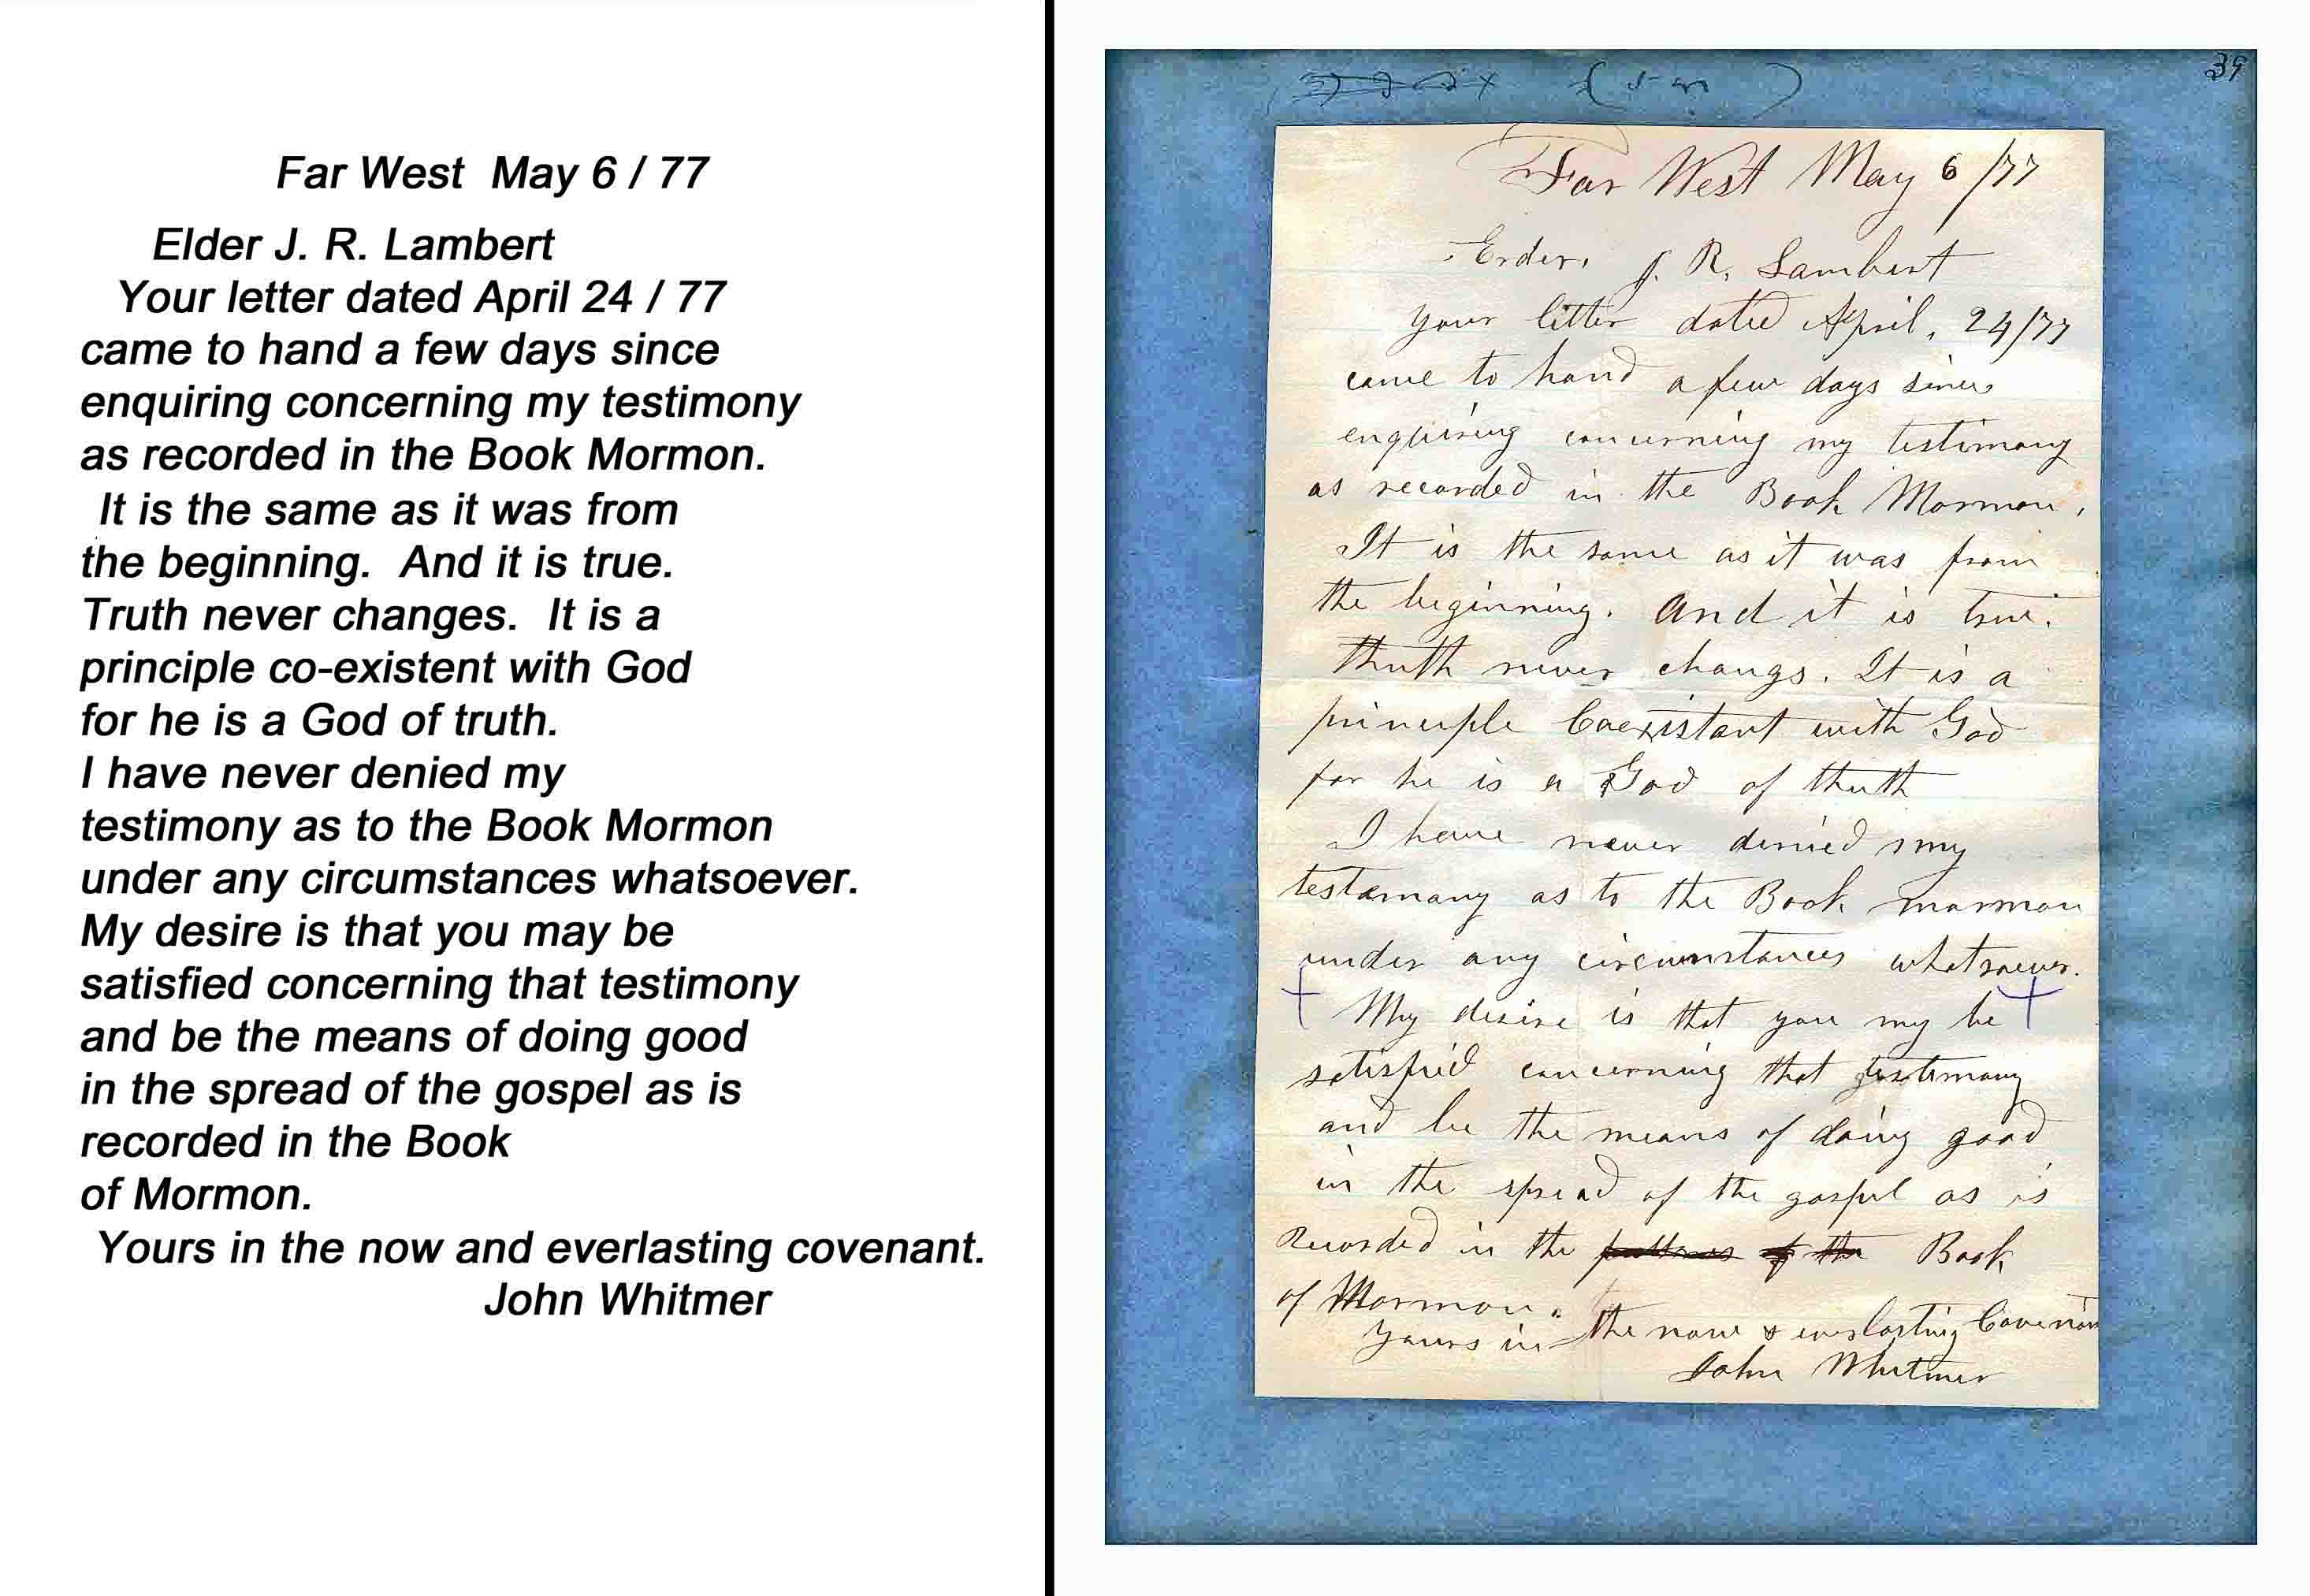 Far West May 6 / 77
Elder J. R. Lambert
Your letter dated April 24 / 77
came to hand a few days since
enquiring concerning my testimony
as recorded in the Book Mormon.
It is the same as it was from
the beginning. And it is true.
Truth never changes. It is a
principle co-existent with God
for he is a God of truth.
I have never denied my
testimony as to the Book Mormon
under any circumstances whatsoever.
My desire is that you may be
satisfied concerning that testimony
and be the means of doing good
in the spread of the gospel as is
recorded in the Book
of Mormon.
Yours in the now and everlasting covenant.
John Whitmer
39
Far West May 6 /77
Erder, J. R. Lambert
your litter dated April, 24/77
came to hand a few days since
enquiring concerning my testimony
as recorded in the Book Mormon,
It is the same as it was from
the beginning. And it is true.
thuth never changs. It is a
principle Coexistant with God
for he is a God of thuth
I have never denied my
testamony as to the Book mormon
under any circumstances whatsoever.
My desire is that you my be
satisfied concerning that testimony
and be the means of doing good
in the spread of the gospel as is
recorded in the Book
of Mormon.
yours in the now & everlasting Covenan
John Whitmer